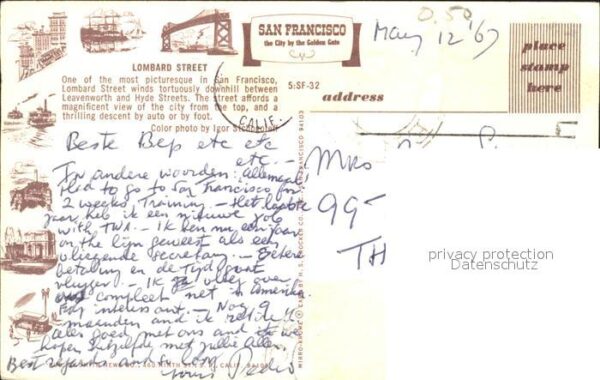 SAN FRANCISCO
the City by the Golden Gate
0.50
May 12 '67
LOMBARD STREET
One of the most picturesque in San Francisco,
Lombard Street winds tortuously downhill between
Leavenworth and Hyde Streets. The street affords a
magnificent view of the city from the top, and a
thrilling descent by auto or by foot.
Color photo by Igor
5:SF-32
address
place
stamp
here
CALIF.
Beste Bep etc etc
etc. -
In andere woorden: Allemaal
Had to go to San Francisco for
2 weeks, Training. - Het laatste
jaar heb ik een nieuwe job
with TWA. - Ik ben nu een jaar
on the lijn geweest als een
vliegende secretary. - Betere
betaling en de tijd gaat
vlugger. - Ik vlieg over
compleet net in Amerika.
interessant. - Nog 9
maanden and it retile
alles goed met ons and we
hopen hetzelfde met jullie Allen.
Best regards and so long
Yours Pedro
Mrs
99-
TH
privacy protection
Datenschutz
SAN FRANCISCO 94103